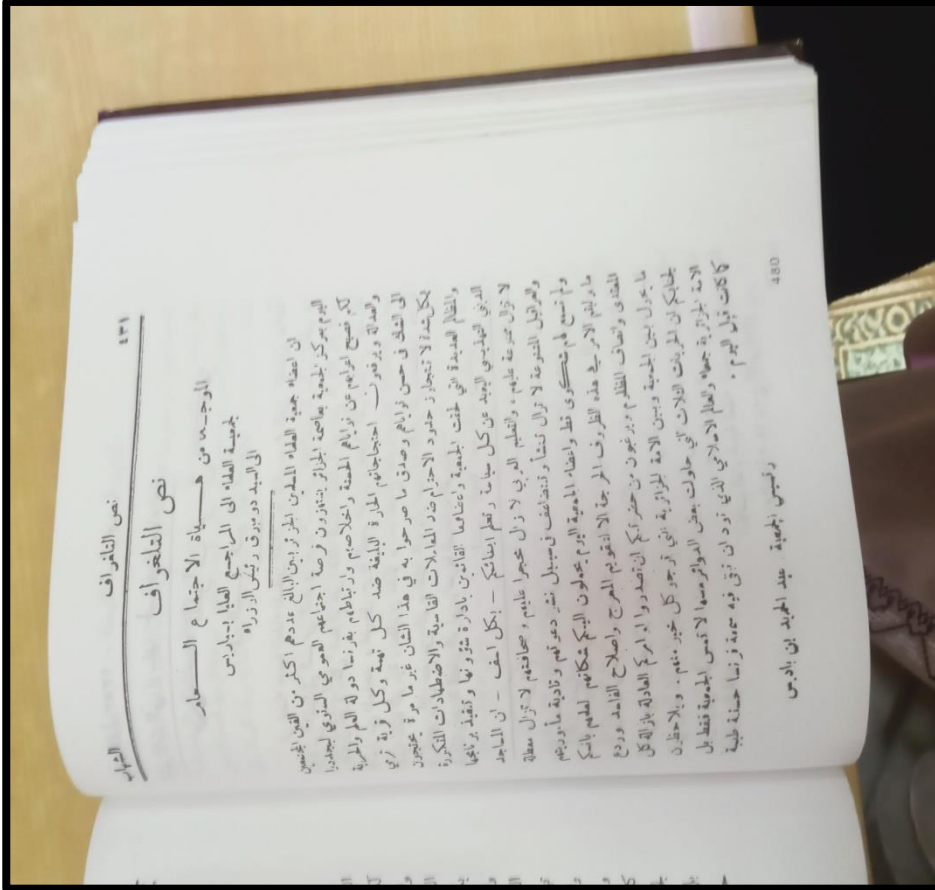 الشهاب نص التلغراف ٤٣١
نص التلغراف
الموجه من هيأة الاجتماع العام
لجمعية العلماء الى المراجع العليا بباريس
الى السيد دوميرق رئيس الوزراء
ان اعضاء جمعية العلماء المسلمين الجزائريين البالغ عددهم اكثر من الفين المجتمعين
اليوم بمركز الجمعية بعاصمة الجزائر ينتهزون فرصة اجتماعهم العمومي السنوي ليجددوا
لكم فصيح اعرابهم عن نواياهم الحسنة واخلاصهم وارتباطهم بفرنسا دولة العلم والحرية
والعدالة ويرفعون احتجاجاتهم الحارة البليغة ضد كل تهمة وكل فرية ترمي
الى الشك في حسن نواياهم وصدق ما صرحوا به في هذا الشان غير ما مرة يحتجون
بكل شدة لا تتجاوز حدود الاحترام ضد المعاملات القاسية والاضطهادات المتكررة
والمظالم العديدة التي لحقت الجمعية واعضاءها القائمين بادارة شؤونها وتنفيذ برنامجها
الديني التهذيبي البعيد عن كل سياسة وتعلم ابنائكم - بكل اسف - ان المساجد
لا تزال ممنوعة عليهم، والتعليم العربي لا زال محجرا عليهم وصحافتهم لا تزال معطلة
والعراقيل المتنوعة لا تزال تنشأ وتتضاعف في سبيل نشر دعوتهم وتادية مأموريتهم
ولم تسمع لهم شكوى قط واعضاء الجمعية اليوم يحملون اليكم شكاتهم لعلمهم بانكم
ما وليتم الامر في هذه الظروف الحرجة الا لتقويم المعوج واصلاح الفاسد وردع
المعتدي وانصاف المظلوم ويرغبون من حضرتكم ان تصدروا اوامركم العادلة بازالة كل
ما يحول بين الجمعية وبين الامة الجزائرية التي ترجو كل خير منهم. ويلاحظون
لجنابكم ان الحركات التي حاولت بعض الدوائر مسها لا تمس الجمعية فقط بل
الامة الجزائرية جمعاء والعالم الاسلامي الذي نود ان تبقى فيه سمعة فرنسا حسنة طيبة
كما كانت قبل اليوم.
رئيس الجمعية عبد الحميد ابن باديس
480